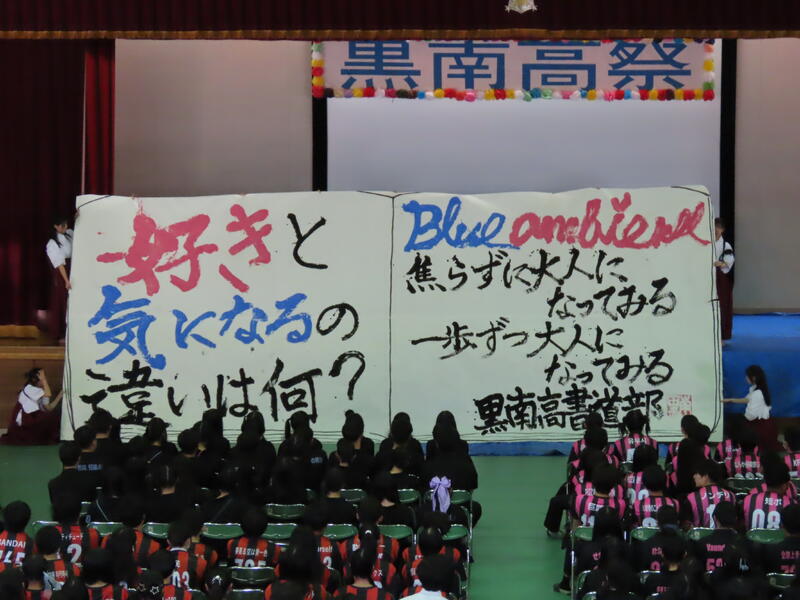 黒南高祭
好きと
気になるの
違いは何?
Blue ambience
焦らずに大人に
なってみる
一歩ずつ大人に
なってみる
黒南高書道部